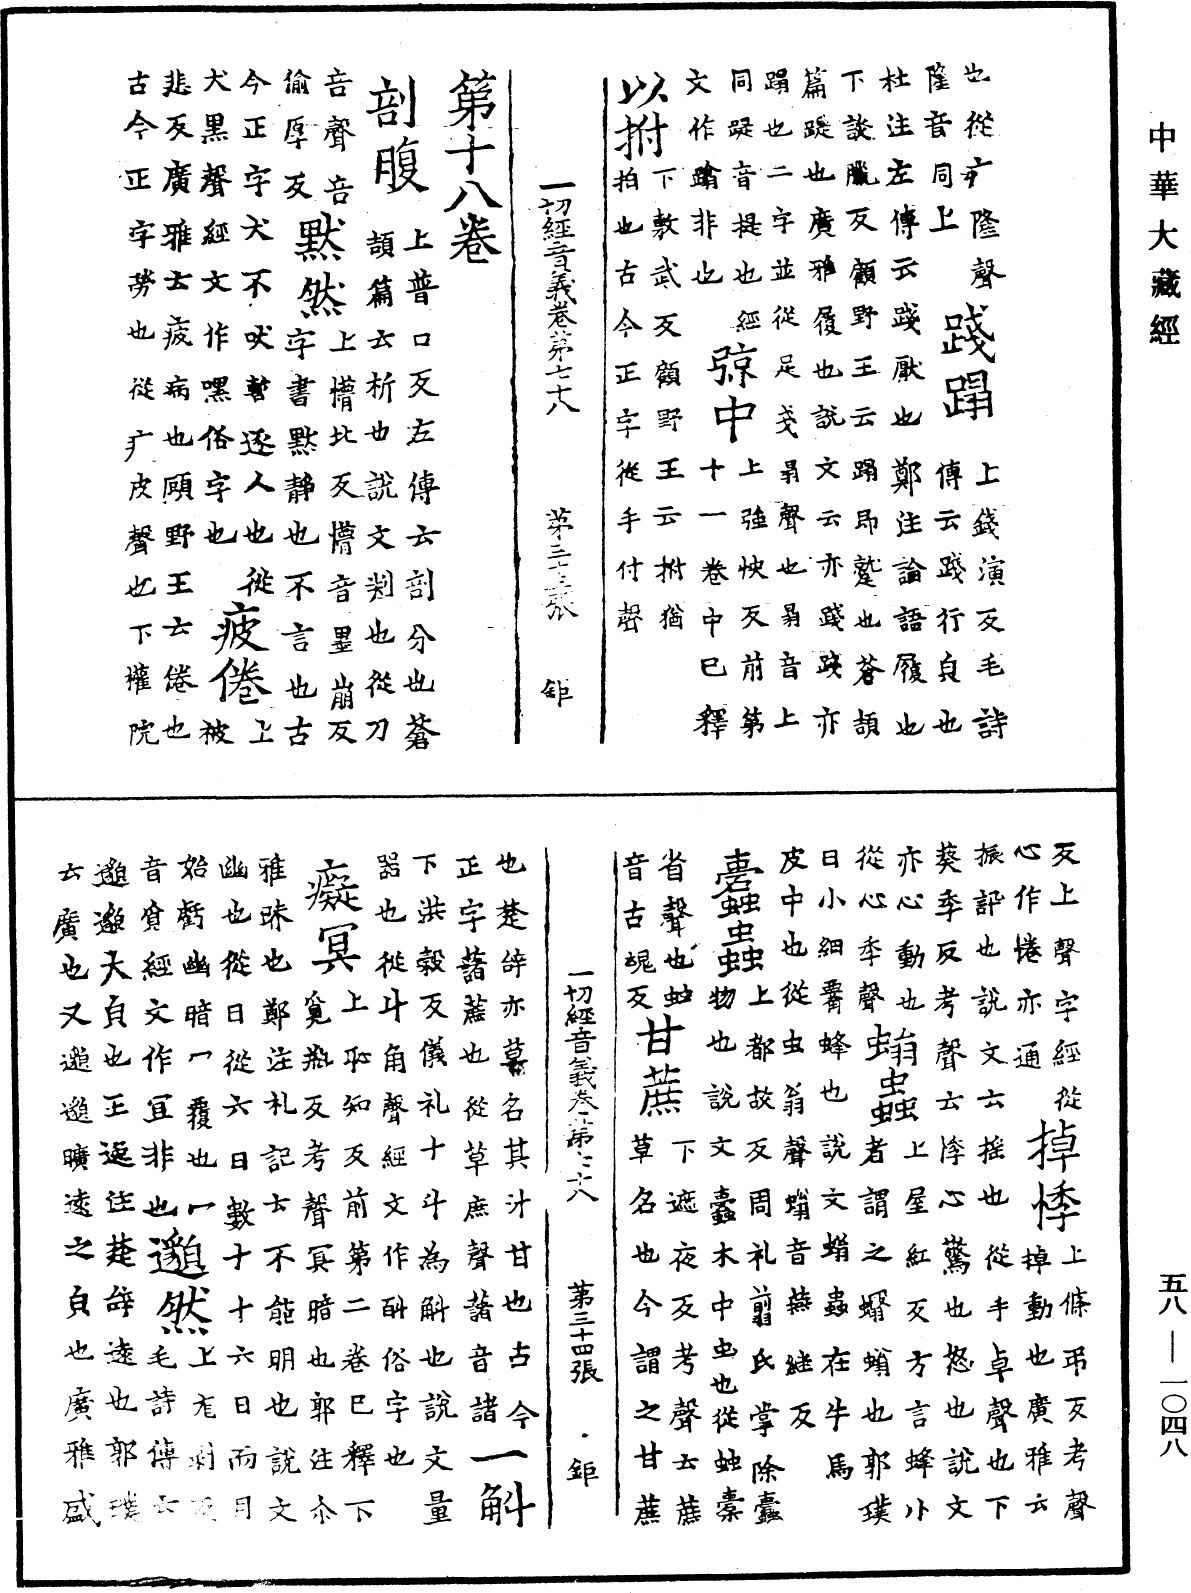 中華大藏經
也從疒隆聲
隆音同上
踐蹋
上錢演反毛詩
傳云踐行皃也
杜注左傳云踐厭也鄭注論語履也
下談臘反顧野王云蹋即蹵也蒼頡
篇踶也廣雅履也說文云亦踐踶亦
蹋也二字並從足戔𦐇聲也𦐇音上
同踶音提也
經文作蹹非也
弶中
上強怏反前第
十一卷中已釋
以拊
下敷武反顧野王云拊猶
拍也古今正字從手付聲
一切經音義卷第七十八 第三十三張 鉅
第十八卷
剖腹
上普口反左傳云剖分也蒼
頡篇云析也說文判也從刀
咅聲咅
偷厚反
默然
上懵北反懵音墨崩反
字書默靜也不言也古
今正字犬不吠暫逐人也從
犬黑聲經文作嘿俗字也
疲倦
上被
悲反廣雅云疲病也顧野王云倦也
古今正字勞也從疒皮聲也下權院
反上聲字經從
心作惓亦通
掉悸
上條弔反考聲
掉動也廣雅云
振訊也說文云搖也從手卓聲也下
葵季反考聲云悸心驚也怒也說文
亦心動也
從心季聲
螉蟲
上屋紅反方言蜂小
者謂之蠮螉也郭璞
日小細腰蜂也說文螉蟲在牛馬
皮中也從虫翁聲螉音燕繼反
蠹蟲
上都故反周禮翦氏掌除蠹
物也說文蠹木中虫也從䖵橐
省聲也䖵
音古魂反
甘蔗
下遮夜反考聲云蔗
草名也今謂之甘蔗
一切經音義卷第七十八 第三十四張 鉅
也楚辭亦草名其汁甘也古今
正字藷蔗也從草庶聲藷音諸
一斛
下洪穀反儀礼十斗為斛也說文量
器也從斗角聲經文作㪶俗字也
癡冥
上恥知反前第二卷已釋下
覓瓶反考聲冥暗也郭注尒
雅昧也鄭注礼記云不能明也說文
幽也從日從六日數十十六日而月
始虧幽暗冖覆也冖
音覓經文作冝非也
邈然
上尨剥反
毛詩傳云
邈邈大皃也王逸注楚辭遠也郭璞
云廣也又邈邈曠遠之皃也廣雅盛
五八—一〇四八